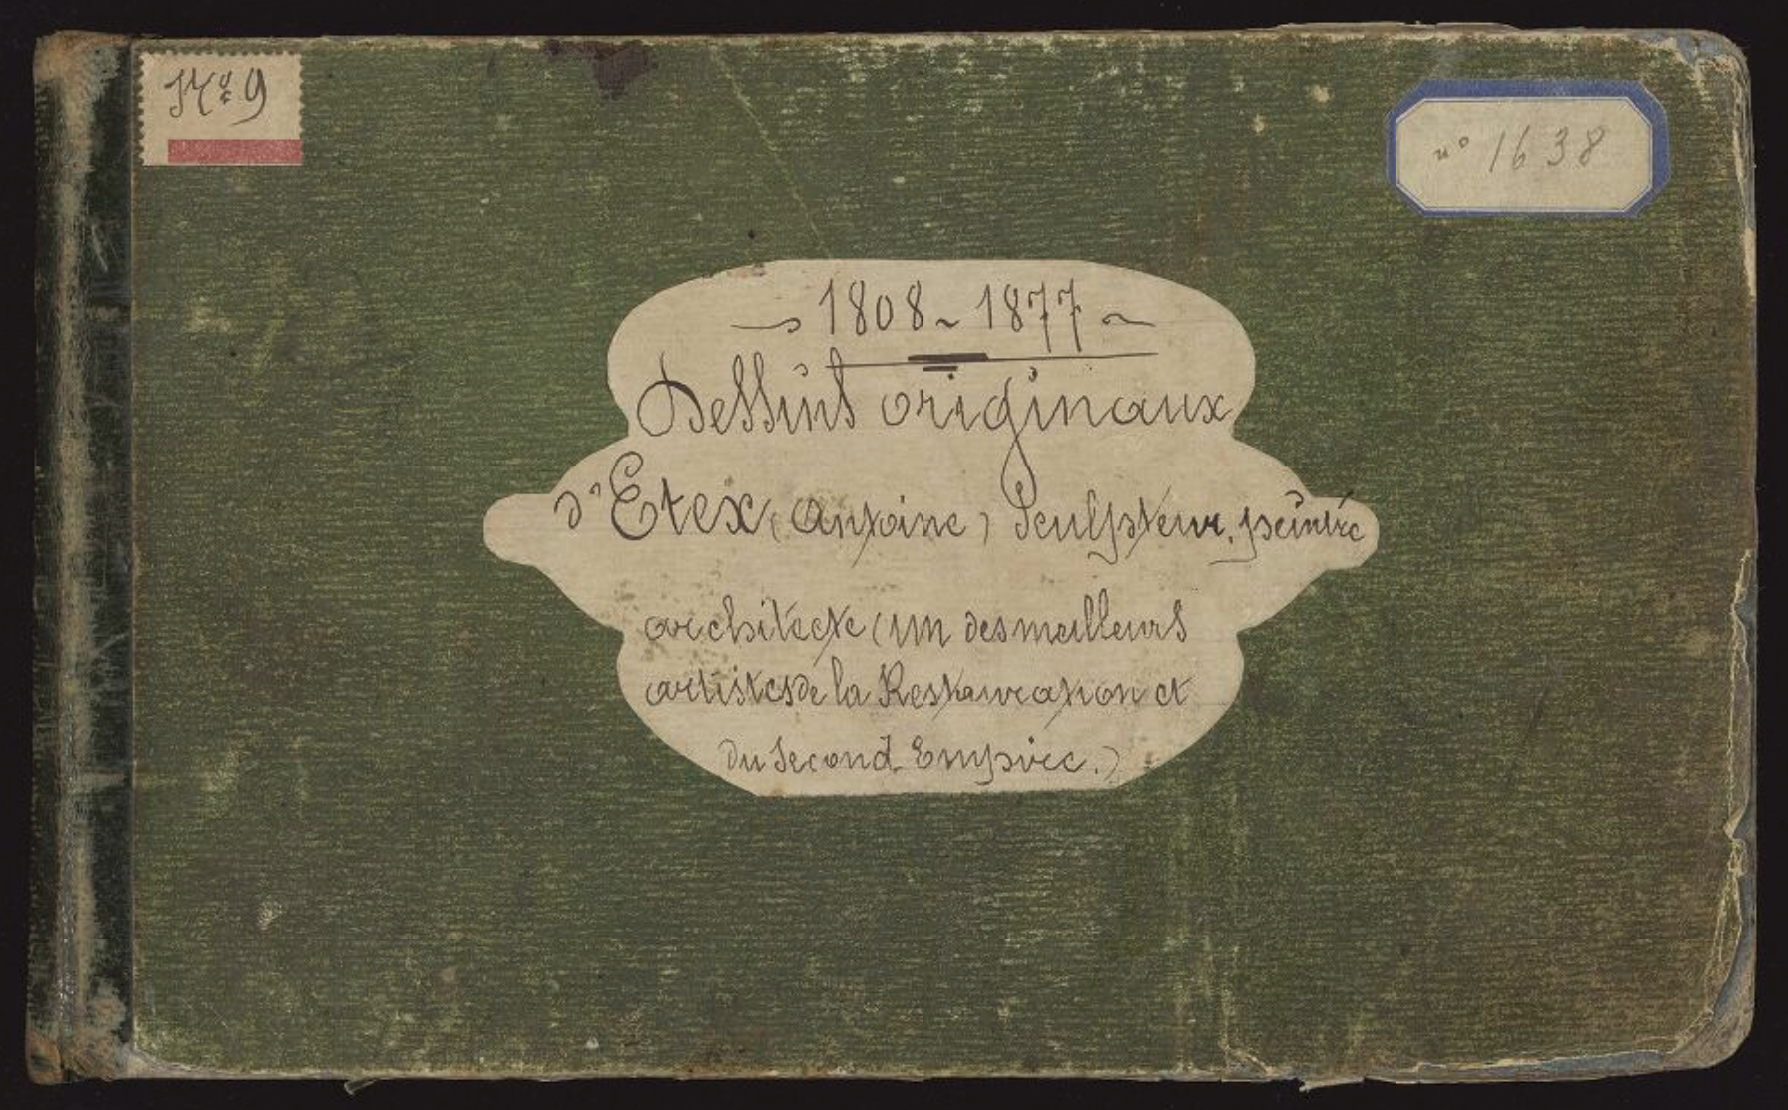 N° 9
n° 1638
1808 ~ 1877
Dessins originaux
d'Etex (Antoine) Sculpteur, peintre
architecte (un des meilleurs
artistes de la Restauration et
du Second Empire.)